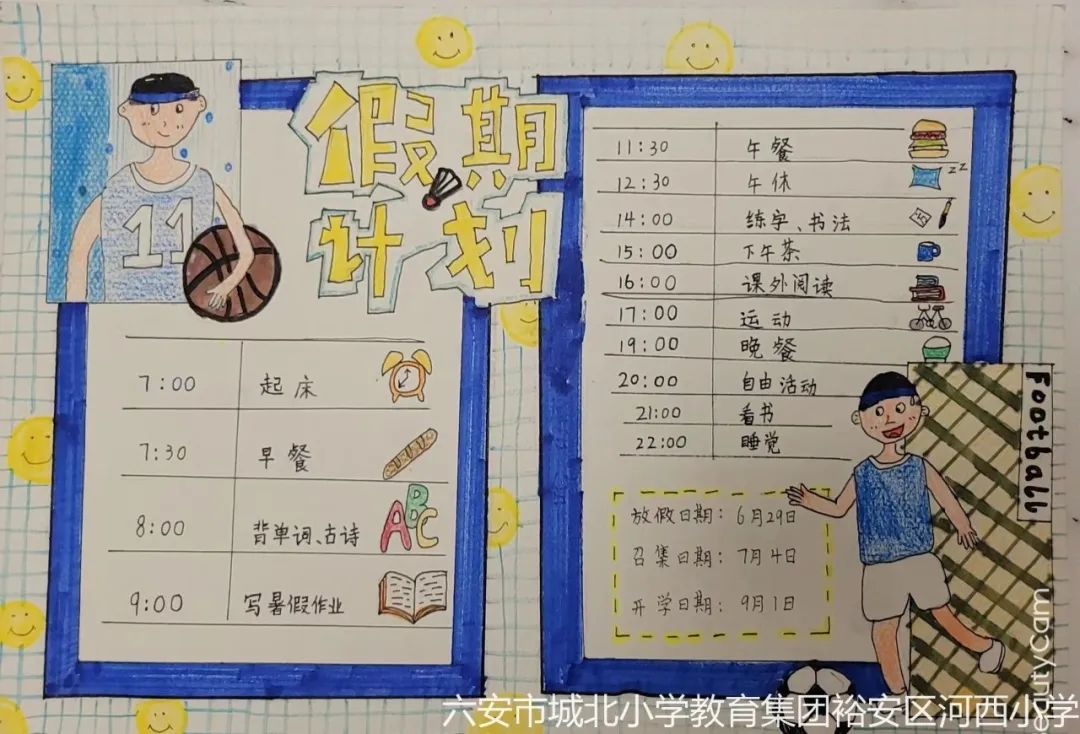 假期
计划
11
7:00 起床
7:30 早餐
8:00 背单词、古诗
ABC
9:00 写暑假作业
11:30 午餐
12:30 午休
zz
14:00 练字、书法
15:00 下午茶
16:00 课外阅读
17:00 运动
19:00 晚餐
20:00 自由活动
21:00 看书
22:00 睡觉
Football
放假日期: 6月29日
召集日期: 7月4日
开学日期: 9月1日
eautyCam
六安市城北小学教育集团裕安区河西小学